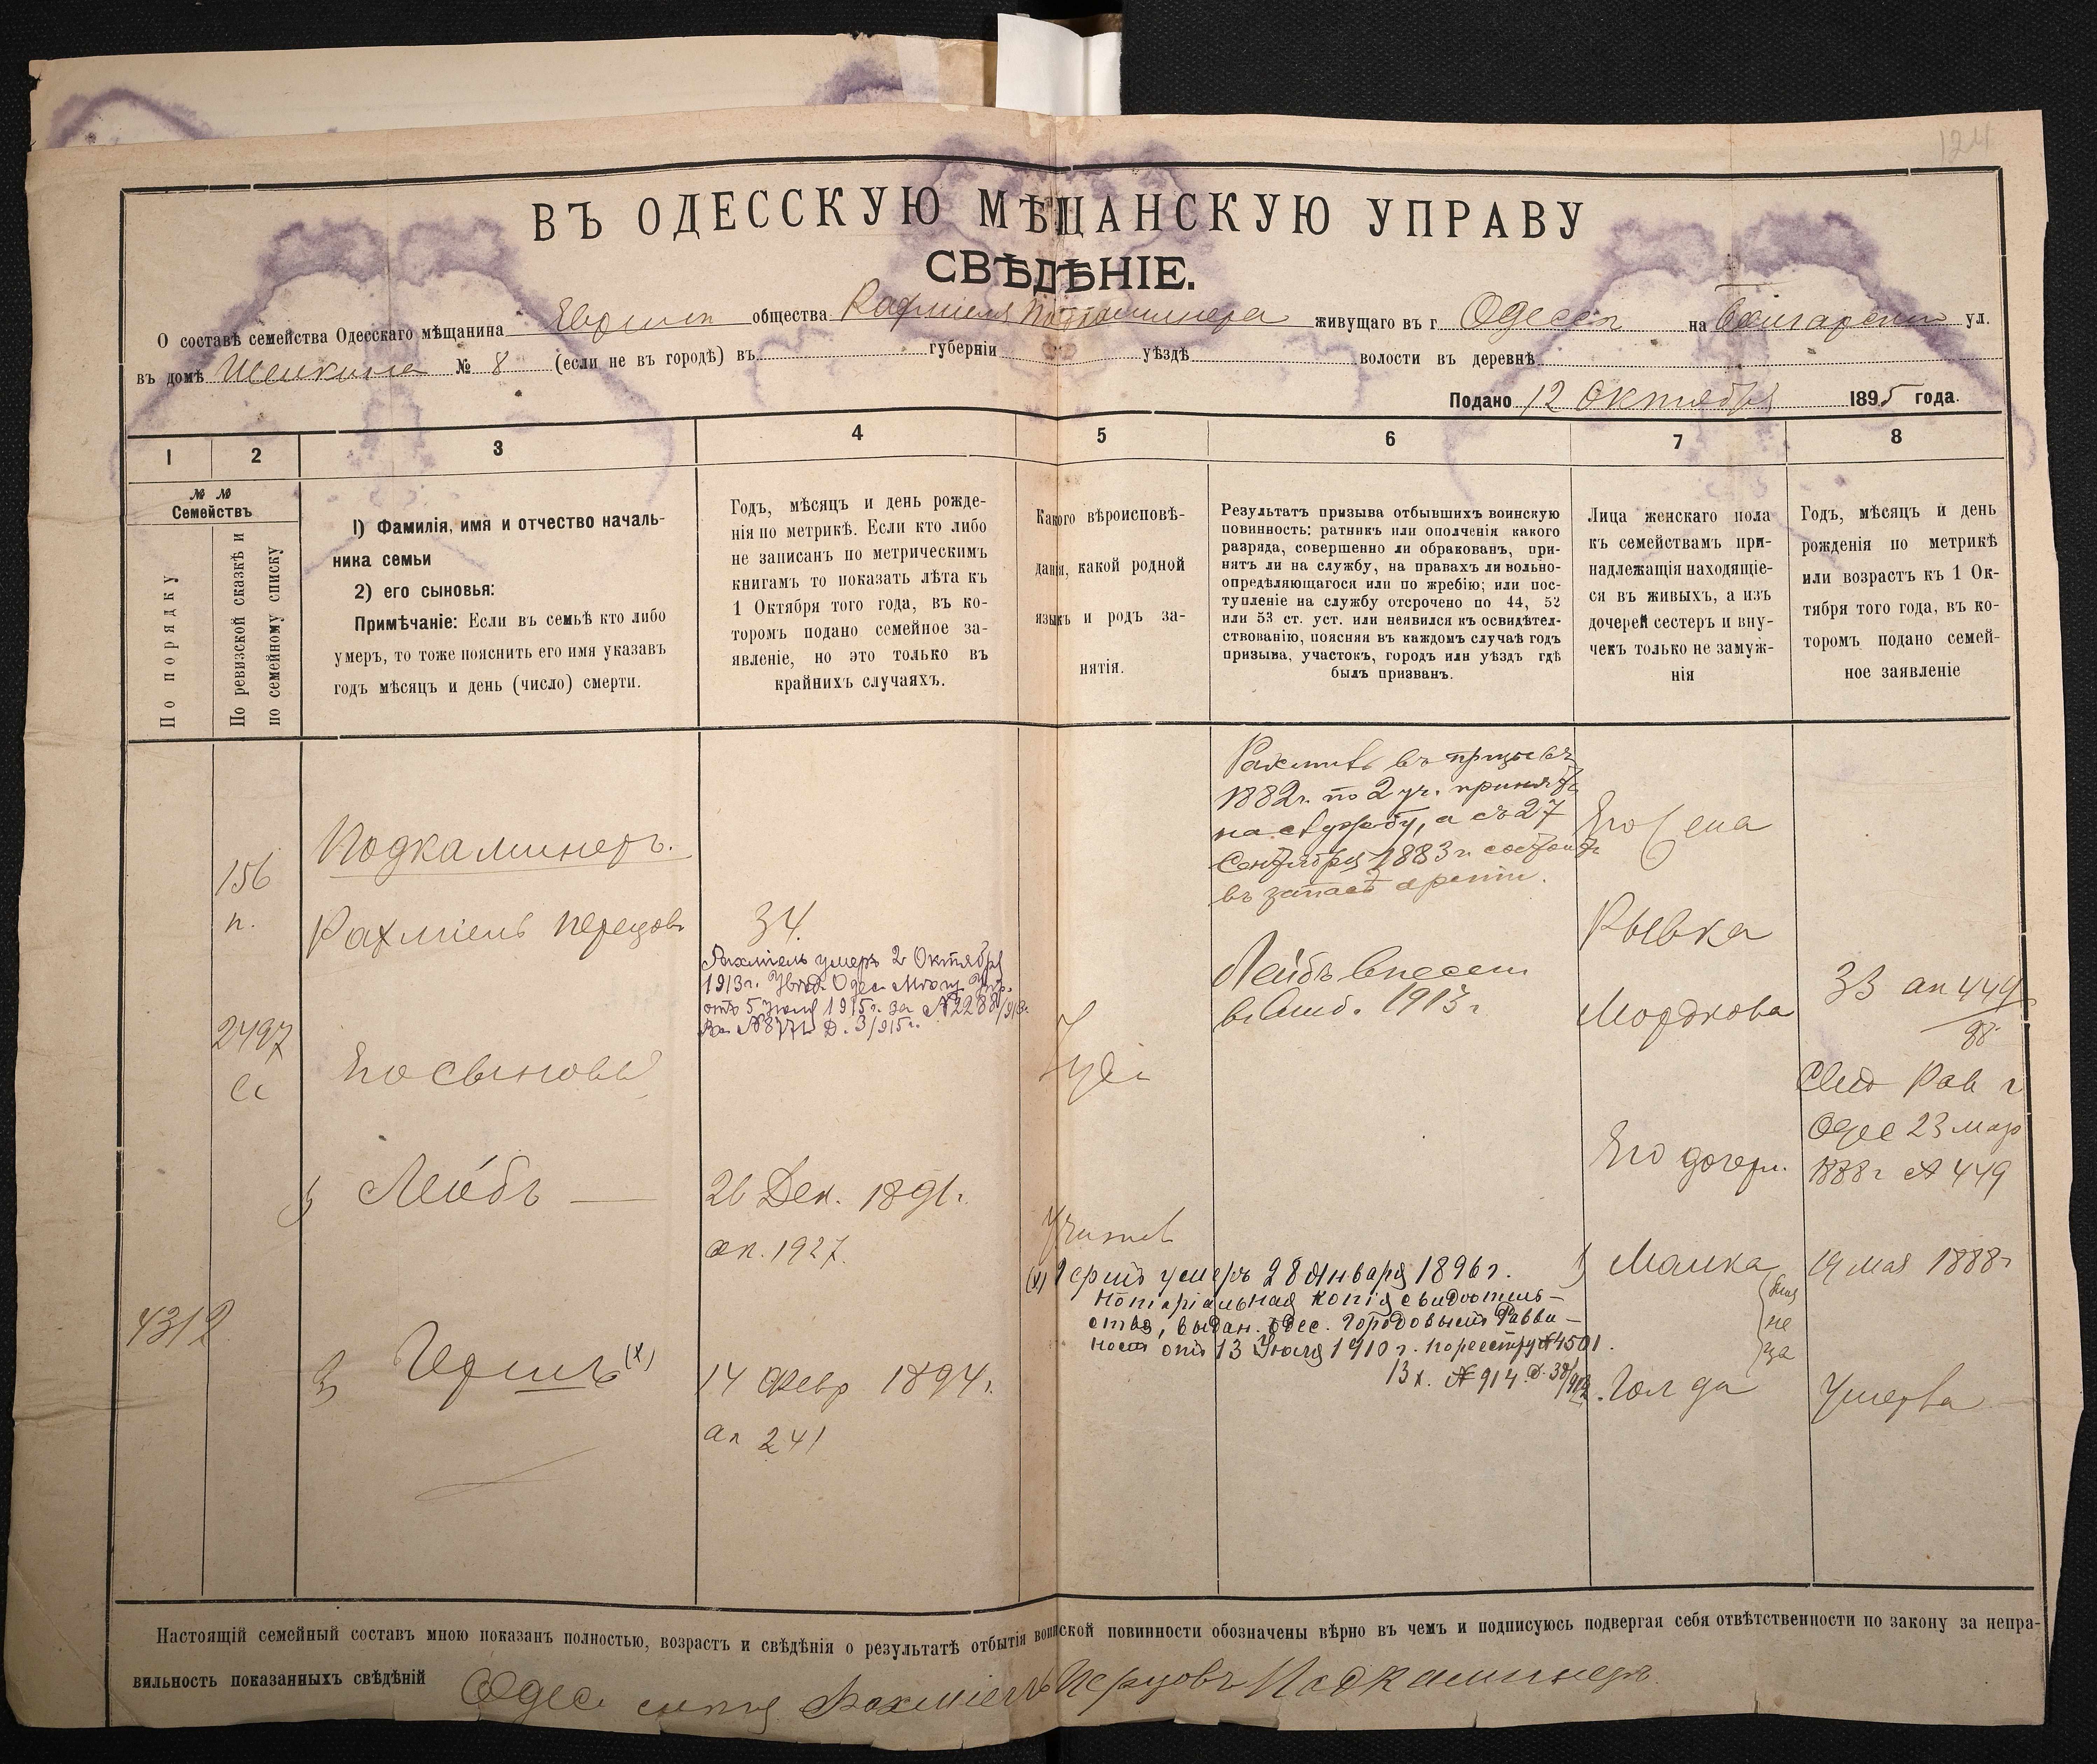 124
ВЪ ОДЕССКУЮ МѢЩАНСКУЮ УПРАВУ
СВѢДѢНІЕ.
О составѣ семейства Одесскаго мѣщанина Еврейск общества Рахмиеля Подкаминера живущаго въ г Одессѣ на Болгарской ул.
въ домѣ № 8 (если не въ городѣ) въ губерніи уѣздѣ волости въ деревнѣ
Подано 12 Октября 1895 года.
1 2 3 4 5 6 7 8
№ № Семействъ
По порядку
По ревизской сказкѣ и
по семейному списку
1) Фамилія, имя и отчество началь-
ника семьи
2) его сыновья:
Примѣчаніе: Если въ семьѣ кто либо
умеръ, то тоже пояснить его имя указавъ
годъ мѣсяцъ и день (число) смерти.
Годъ, мѣсяцъ и день рожде-
нія по метрикѣ. Если кто либо
не записанъ по метрическимъ
книгамъ то показать лѣта къ
1 Октября того года, въ ко-
торомъ подано семейное за-
явленіе, но это только въ
крайнихъ случаяхъ.
Какого вѣроисповѣ-
данія, какой родной
языкъ и родъ за-
нятія.
Результатъ призыва отбывшихъ воинскую
повинность: ратникъ или ополченія какого
разряда, совершенно ли обракованъ, при-
нятъ ли на службу, на правахъ ли вольно-
опредѣляющагося или по жребію; или пос-
тупленіе на службу отсрочено по 44, 52
или 53 ст. уст. или неявился къ освидѣтел-
ствованію, поясняя въ каждомъ случаѣ годъ
призыва, участокъ, городъ или уѣздъ гдѣ
былъ призванъ.
Лица женскаго пола
къ семействамъ при-
надлежащія находящіе-
ся въ живыхъ, а изъ
дочерей сестеръ и вну-
чекъ только не замуж-
нія
Годъ, мѣсяцъ и день
рожденія по метрикѣ
или возрастъ къ 1 Ок-
тября того года, въ ко-
торомъ подано семей-
ное заявленіе
156
п.
2497
4312
Подкаминеръ.
Рахміель Перецовъ
Его сыновья
Лейбъ
Гершъ (х)
34.
Рахміель умеръ 2 Октября
1913г. Увѣд. Одес. Мѣщ. Упр.
отъ 5 Іюля 1915г. за №2288/913г.
Вх. №8771 Д. 3/915г.
26 Дек. 1891г.
ак. 1927.
14 Февр 1894г.
ак 241
Іуде
Рахмиль въ призывъ
1882г. по 2 уч. принятъ
на службу, а съ 27
Сентября 1883г. состоитъ
въ запасѣ арміи.
Лейбъ внесен
1913г
(х) Гершъ умеръ 28 Января 1896г.
Нотаріальная копія свидѣтель-
ства, выдан. Одес. Городовымъ Равви-
номъ отъ 13 Іюля 1910г. по реестру №4501.
Вх. №914
Его жена
Рывка
Мордкова
Его дочери.
1) Малка
Голда
33 ак 449
88
Свид Рав г
Одес 23 мар
1888г № 449
19 мая 1888г
Умерла
Настоящій семейный составъ мною показанъ полностью, возрастъ и свѣдѣнія о результатѣ отбытія воинской повинности обозначены вѣрно въ чемъ и подписуюсь подвергая себя отвѣтственности по закону за непра-
вильность показанныхъ свѣдѣній Одес. Рахміель Перцовъ Подкаминеръ